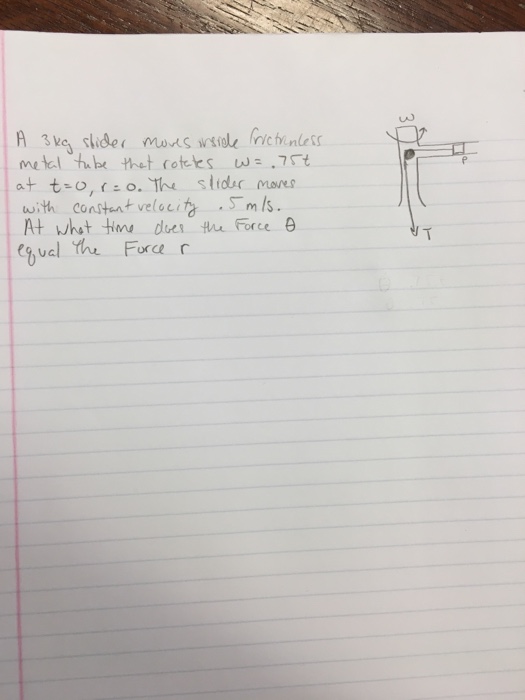 A 3 kg slider moves inside frictionless
metal tube that rotates ω = .75t
at t=0, r=0. The slider moves
with constant velocity .5 m/s.
At what time does the Force θ
equal the Force r
ω
P
T